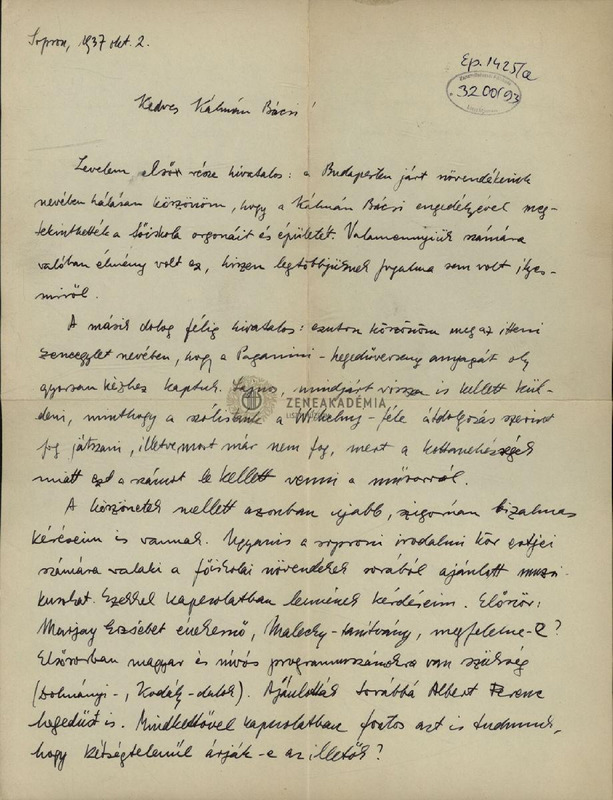 Sopron, 1937 okt. 2.
Ep. 1425/a
3200/93
Kedves Kálmán Bácsi!
Levelem első része hivatalos: a Budapesten járt növendékeink
nevében hálásan köszönöm, hogy a Kálmán Bácsi engedélyével meg-
tekinthették a főiskola orgonáit és épületét. Valamennyiük számára
valóban élmény volt ez, hiszen legtöbbjüknek fogalma sem volt ilyes-
miről.
A másik dolog félig hivatalos: ezuton köszönöm meg az itteni
zeneegylet nevében, hogy a Paganini-hegedűverseny anyagát oly
gyorsan kézhez kaptuk. Sajnos, mindjárt vissza is kellett kül-
ZENEAKADÉMIA
deni, minthogy a szólistánk a Wilhelmj-féle átdolgozás szerint
fog játszani, illetve most már nem fog, mert a kottanehézségek
miatt ezt a számot le kellett venni a műsorról.
A köszönetek mellett azonban ujabb, szigoruan bizalmas
kéréseim is vannak. Ugyanis a soproni irodalmi kör estjei
számára valaki a főiskolai növendékek sorából ajánlott muzsi-
kusokat. Ezekkel kapcsolatban lennének kérdéseim. Először:
Marjay Erzsébet énekesnő, Malecky-tanítvány, megfelelne-e?
Elsősorban magyar és nívós programmszámokra van szükség
(Dohnányi-, Kodály-dalok). Ajánlották továbbá Albert Ferenc
hegedűst is. Mindkettővel kapcsolatban fontos azt is tudnunk,
hogy kétségtelenül árják-e az illetők?